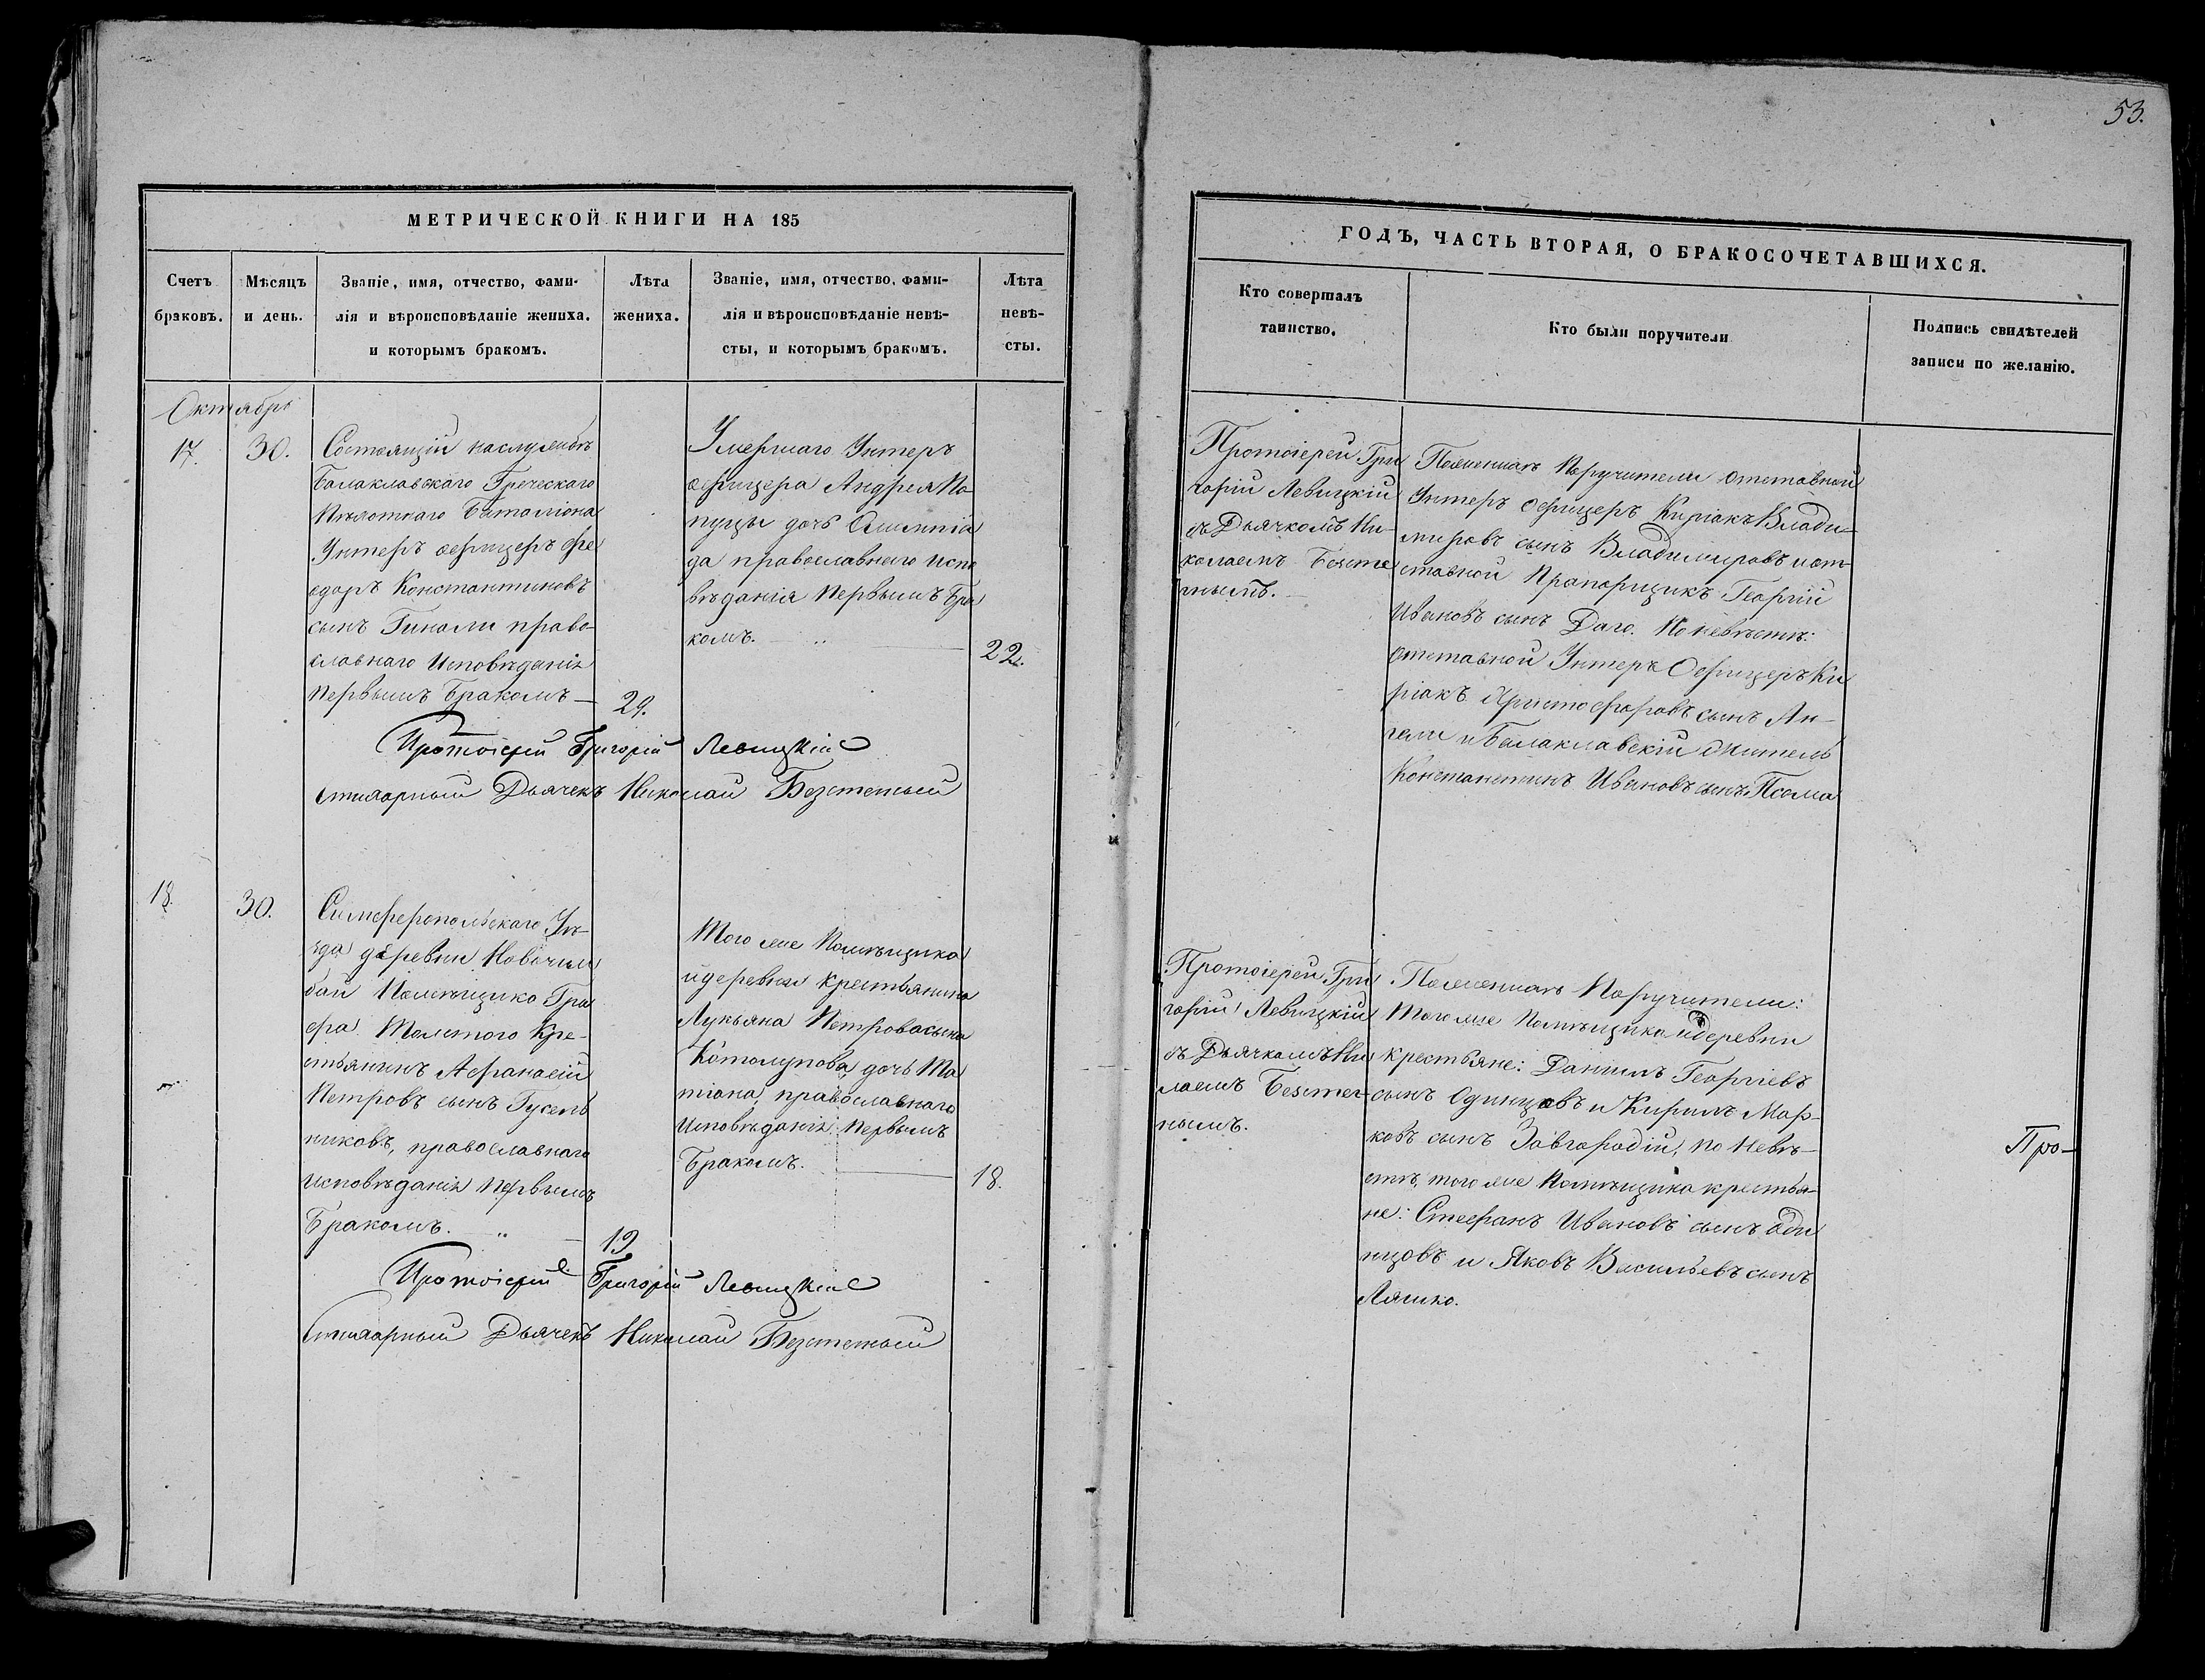 53.
МЕТРИЧЕСКОЙ КНИГИ НА 185
Счетъ
браковъ.
Мѣсяцъ
и день.
Званіе, имя, отчество, фами-
лія и вѣроисповѣданіе жениха.
и которымъ бракомъ.
Лѣта
жениха.
Званіе, имя, отчество, фами-
лія и вѣроисповѣданіе невѣ-
сты, и которымъ бракомъ.
Лѣта
невѣ-
сты.
Октябрь
17.
30.
Состоящій наслужбѣ
Балаклавскаго Греческаго
Пѣхотнаго Баталіона
Унтеръ офицеръ Фе
одоръ Константиновъ
сынъ Гинали право-
славнаго Исповѣданія
первымъ Бракомъ —
29.
Умершаго Унтеръ
офицера Андрея По-
пуцы дочь Олимпіа
да православнаго испо
вѣданія первымъ Бра
комъ.
22.
Протоіерей Григорій Левицкій
Стихарный Дьячекъ Николай Безстетный
18.
30.
Симферопольскаго Уѣ-
зда деревни Новочум
бай Помѣщика Гра
фа Толстого Кре-
стьянинъ Афанасій
Петровъ сынъ Гусель
никовъ, православнаго
исповѣданія первымъ
Бракомъ.
19
Того же Помѣщика
и деревни крестьянина
Лукьяна Петрова сына
Котолупова дочь Та
тіана, православнаго
Исповѣданія первымъ
Бракомъ.
18.
Протоіерей Григорій Левицкій
Стихарный Дьячекъ Николай Безстетный
ГОДЪ, ЧАСТЬ ВТОРАЯ, О БРАКОСОЧЕТАВШИХСЯ.
Кто совершалъ
таинство.
Кто были поручители
Подпись свидѣтелей
записи по желанію.
Протоіерей Гри
горій Левицкій
съ Дьячкомъ Ни-
колаемъ
Поженихѣ Поручители отставной
Унтеръ офицеръ Киріакъ Влади-
мировъ сынъ Владимировъ и от-
ставной Прапорщикъ Георгій
Ивановъ сынъ Даго. По невѣстѣ:
отставной Унтеръ Офицеръ Ки
ріакъ Христофоровъ сынъ Ан-
гели и Балаклавскій житель
Константинъ Ивановъ сынъ Псома
Протоіерей Гри
горій Левицкій
съ Дьячкомъ Ни
лаемъ
Поженихѣ Поручители:
Того же Помѣщика и деревни
крестьяне: Даніилъ Георгіевъ
сынъ Одинцовъ и Кирилъ Мар-
ковъ сынъ Завгородій, по невѣ-
стѣ, того же Помѣщика крестья-
не: Стефанъ Ивановъ сынъ Оди
нцовъ и Яковъ Васильевъ сынъ
Ляшко.
Про-